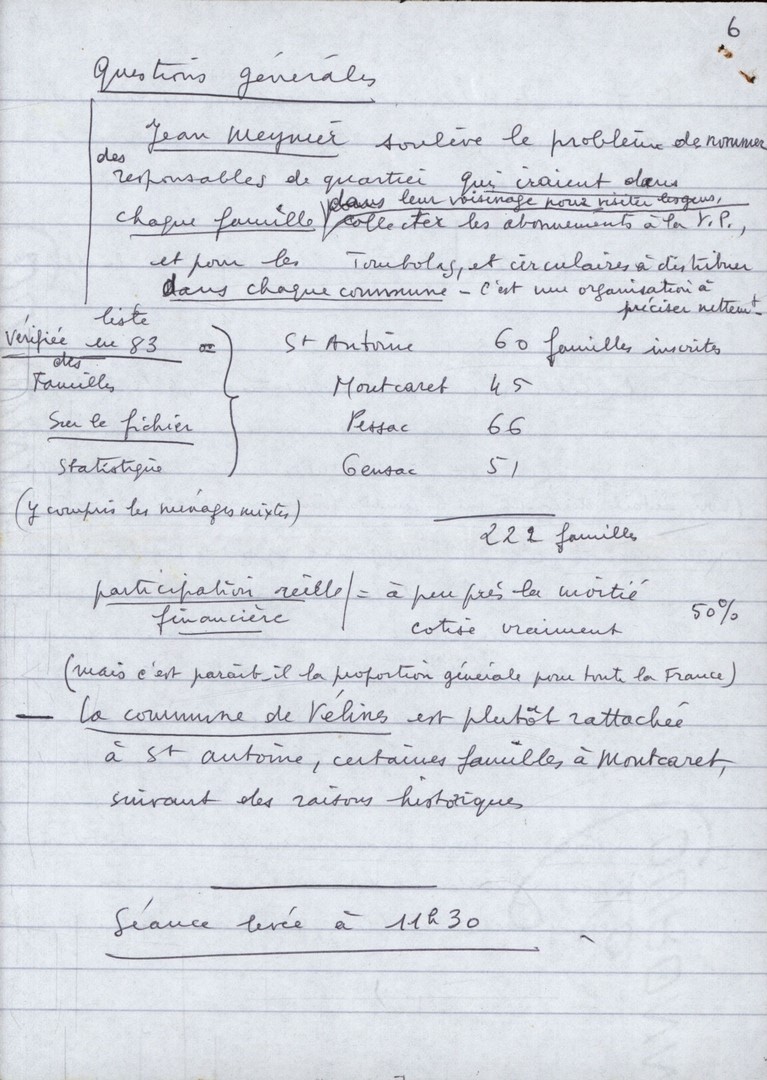 6
Questions générales
Jean Meynier soulève le problème de nommer
des
responsables de quartier qui iraient dans
dans leur voisinage pour visiter les gens,
chaque famille collecter les abonnements à la V.P.,
et pour les Tombolas, et circulaires à distribuer
dans chaque commune - c'est une organisation à
préciser nettemt
liste
Vérifiée en 83 = St Antoine 60 familles inscrites
des
Familles Montcaret 45
Sur le fichier Pessac 66
Statistique Gensac 51
(y compris les ménages mixtes)
222 familles
participation réelle = à peu près la moitié 50%
financière cotise vraiment
(mais c'est paraît-il la proportion générale pour toute la France)
— La commune de Vélines est plutôt rattachée
à St Antoine, certaines familles à Montcaret,
suivant des raisons historiques
Séance levée à 11h30